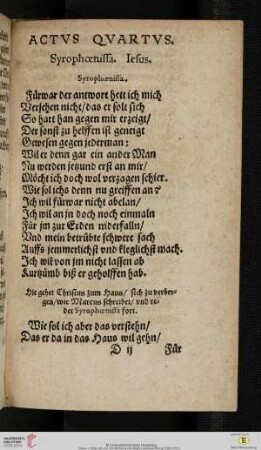 ACTVS QVARTVS.
Syrophœnissa. Iesus.
Syrophœnissa.
Fürwar der antwort hett ich mich
Versehen nicht/das er solt sich
So hart han gegen mir erzeigt/
Der sonst zu helffen ist geneigt
Gewesen gegen jederman:
Wil er denn gar ein ander Man
Nu werden jetzund erst an mir/
Möcht ich doch wol verzagen schier.
Wie sol ichs denn nu greiffen an?
Ich wil fürwar nicht abelan/
Ich wil an jn doch noch einmaln
Für jm zur Erden niderfalln/
Vnd mein betrübte schwere sach
Auffs jemmerlichst vnd kleglichst mach.
Ich wil von jm nicht lassen ab
Kurtzümb biß er geholffen hab.
Hie gehet Christus zum Haus/ sich zu verber-
gen/wie Marcus schreibet/ vnd re-
det Syrophœnissa fort.
Wie sol ich aber das verstehn/
Das er da in das Haus wil gehn/
D ij Für